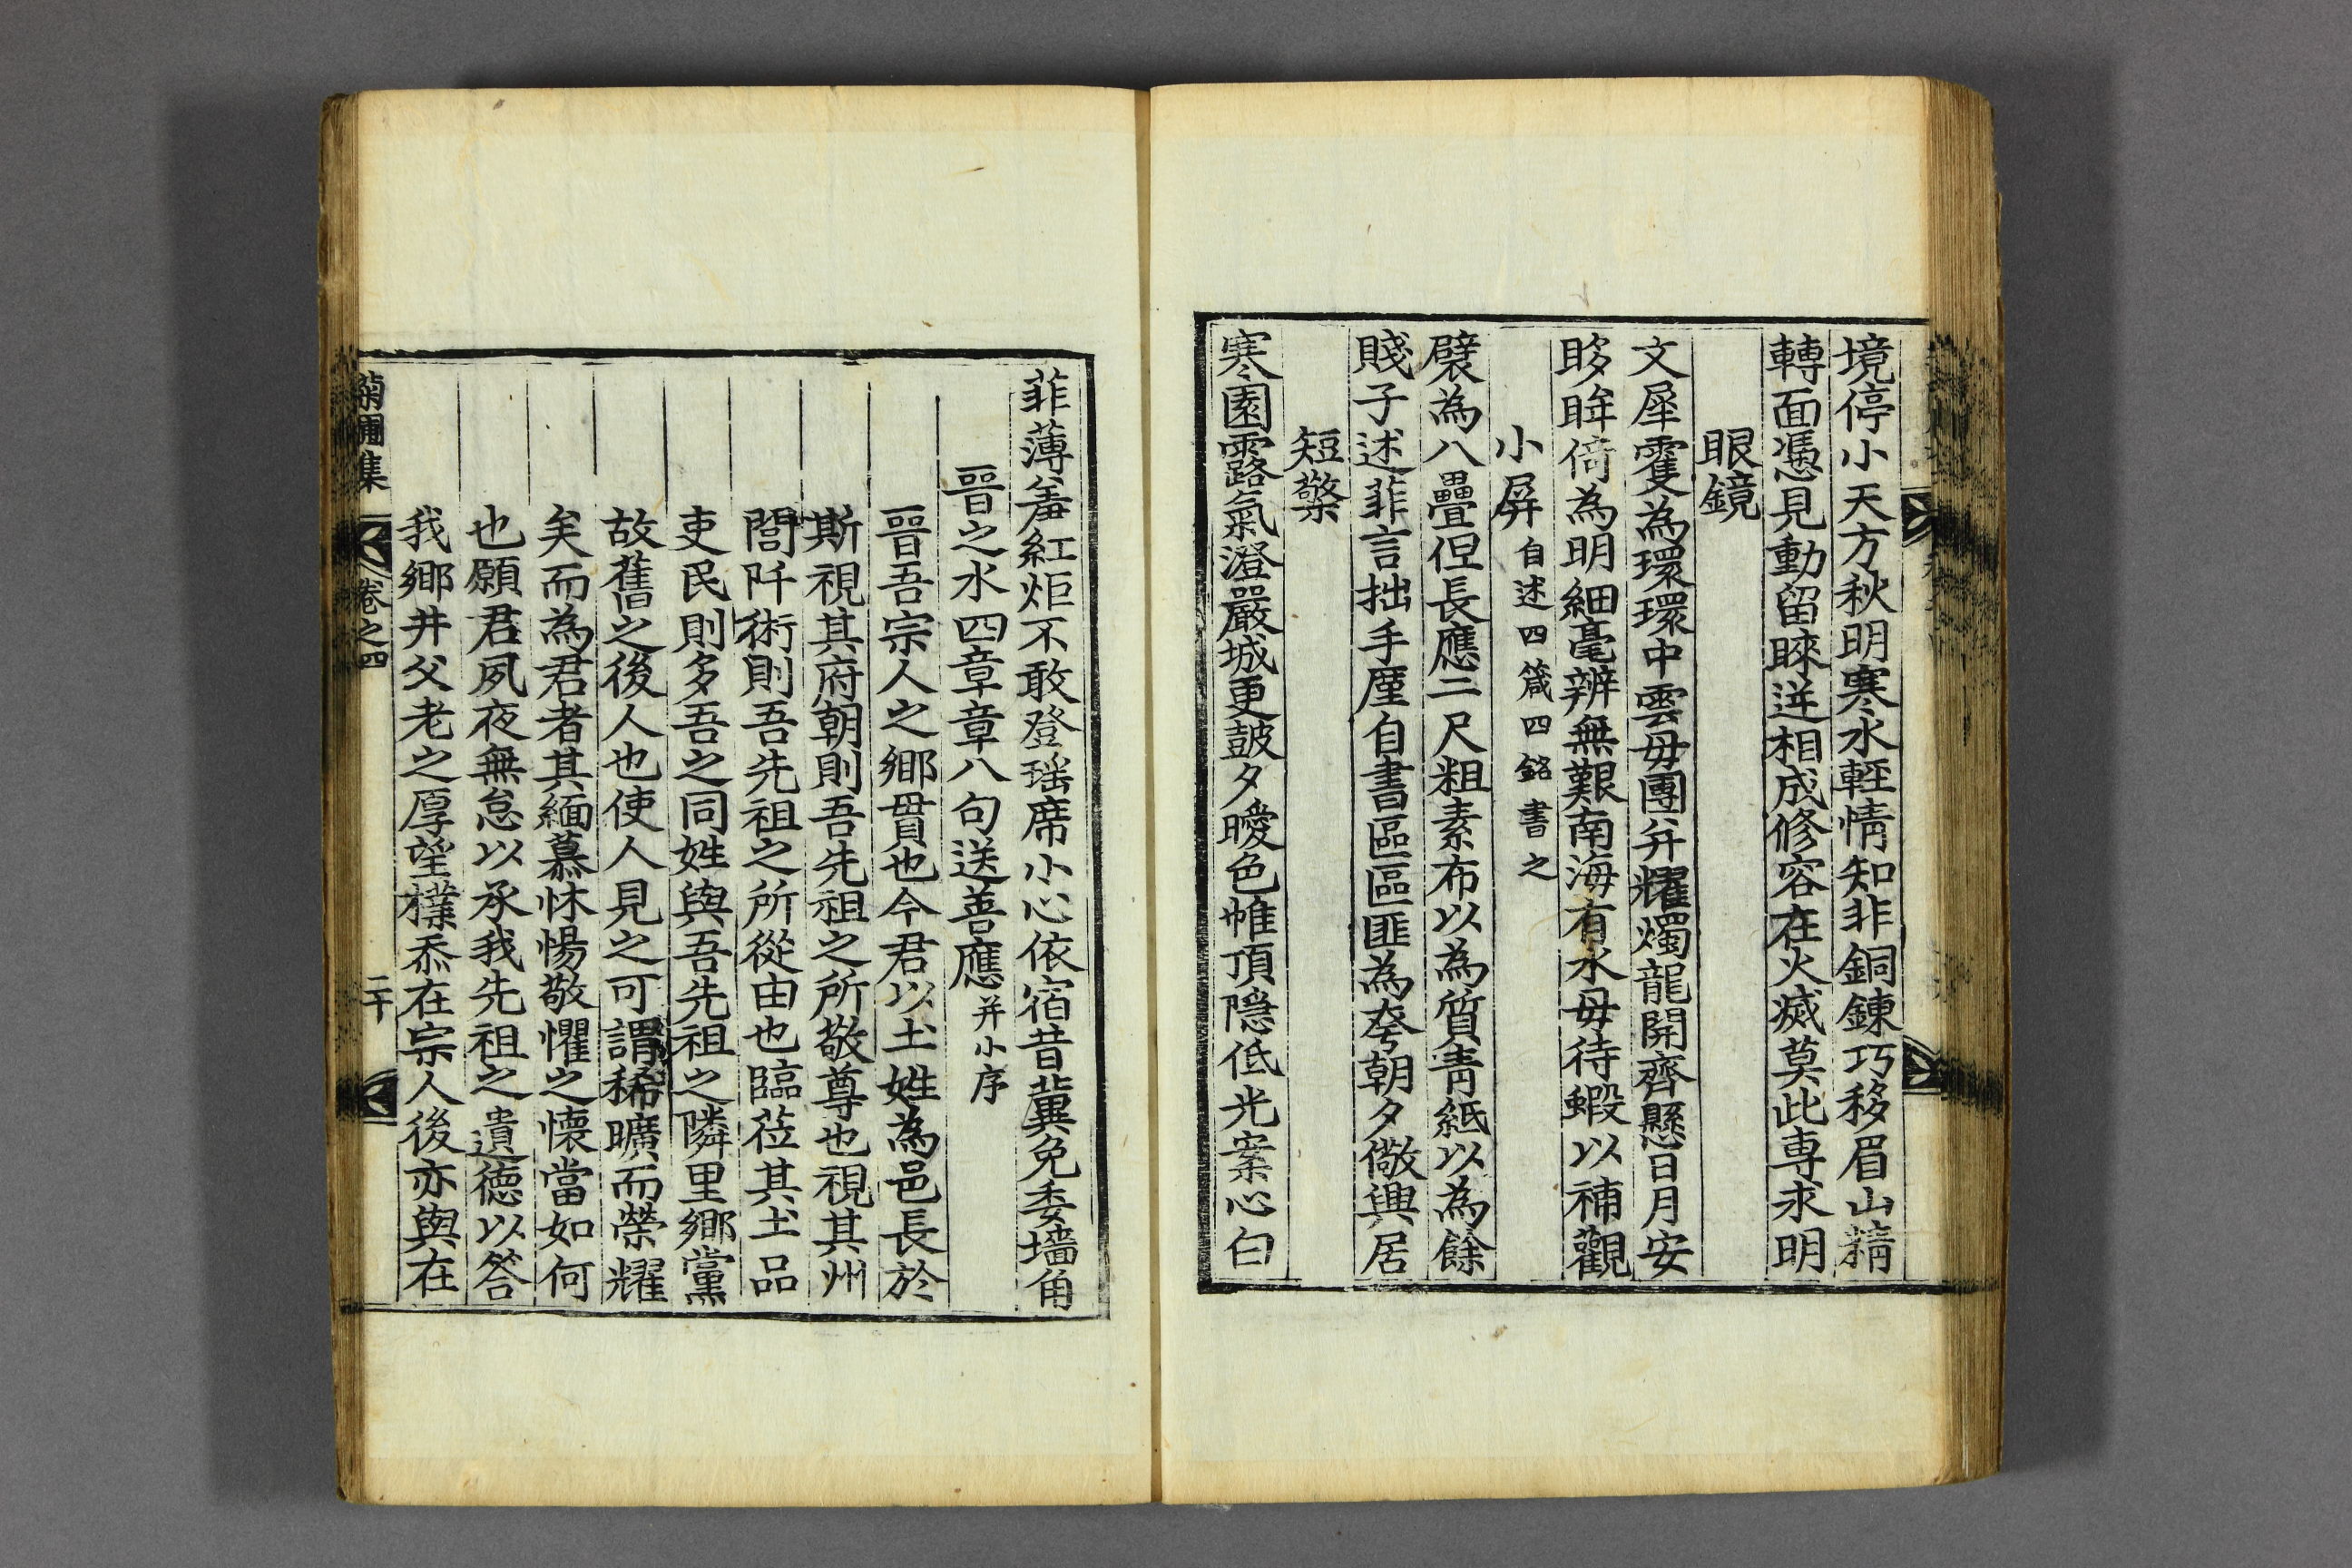 境停小天方秋明寒水輕情知非銅鍊巧移眉山精
轉面憑見動留睞迸相成修容在火滅莫此專求明
眼鏡
文犀雙為環環中雲母團弁耀燭龍開齊懸日月安
眵眸倚為明細毫辨無艱南海有水母待蝦以補觀
小屏 自述四箴四銘書之
襞為八疊但長應二尺粗素布以為質靑紙以為餘
賤子述菲言拙手厘自書區區匪為夸朝夕儆興居
短檠
寒園露氣澄嚴城更鼓夕曖色帷頂隱低光案心白
菲薄羞紅炬不敢登瑤席小心依宿昔冀免委墻角
晉之水四章章八句送善應 并小序
晉吾宗人之鄉貫也今君以土姓為邑長於
斯視其府朝則吾先祖之所敬尊也視其州
閭阡術則吾先祖之所從由也臨莅其土品
吏民則多吾之同姓與吾先祖之隣里鄉黨
故舊之後人也使人見之可謂稀曠而榮耀
矣而為君者其緬慕怵惕敬懼之懷當如何
也願君夙夜無怠以承我先祖之遺德以答
我鄉井父老之厚望檏忝在宗人後亦與在
集 卷之四 二十